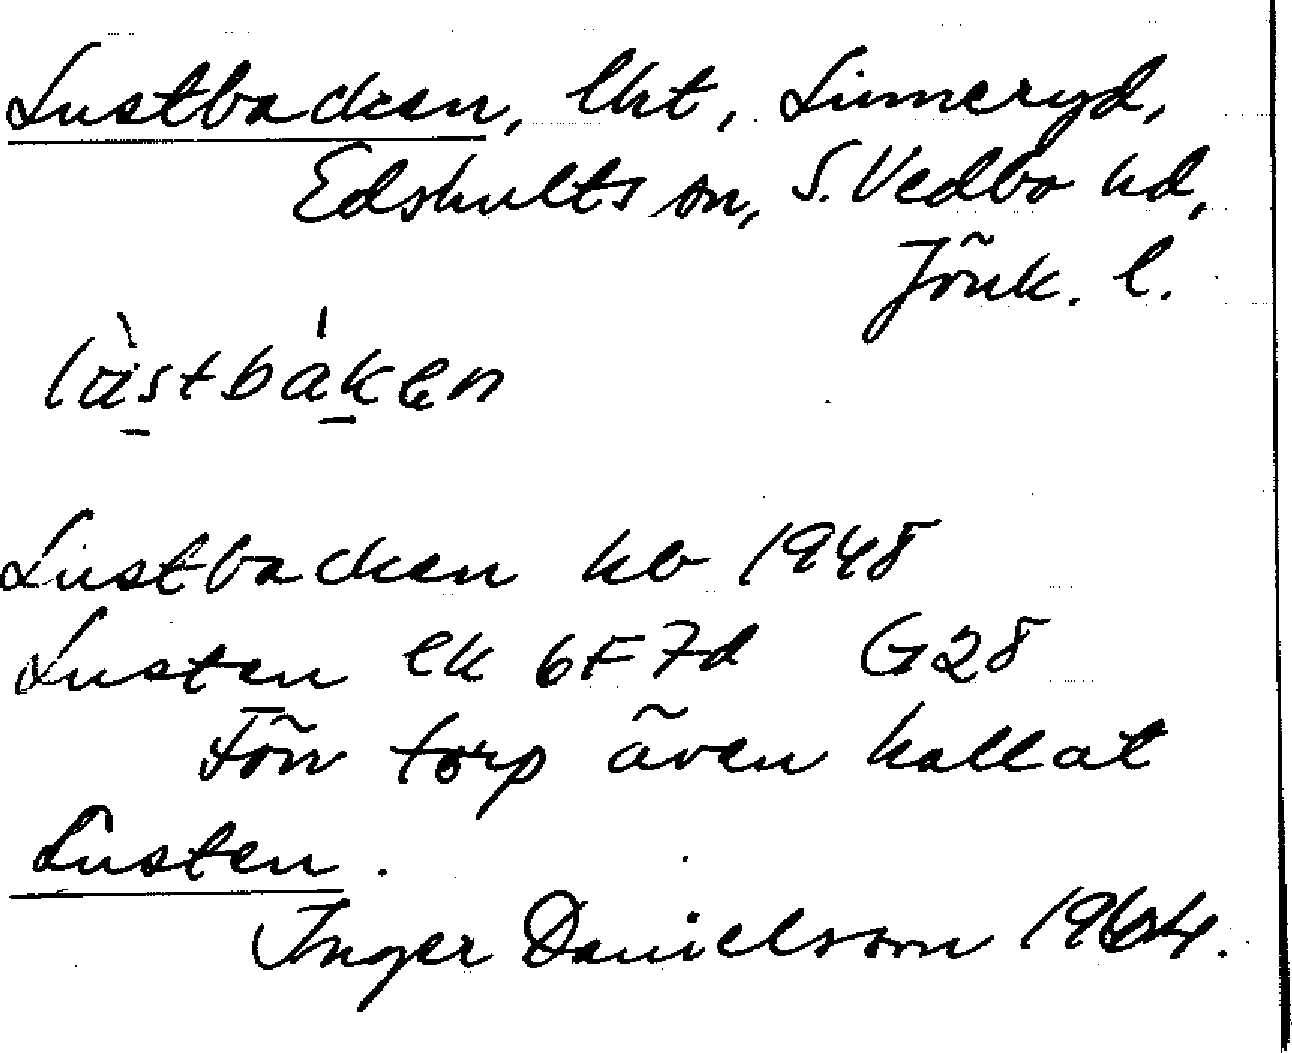 Lustbacken, lht, Limmeryd,
Edshults sn, S. Vedbo hd,
Jönk. l.
Lustbacken kb 1948
Lusten ek 6F7d G28
Förr torp även kallat
Lusten.
Inger Danielsson 1964.